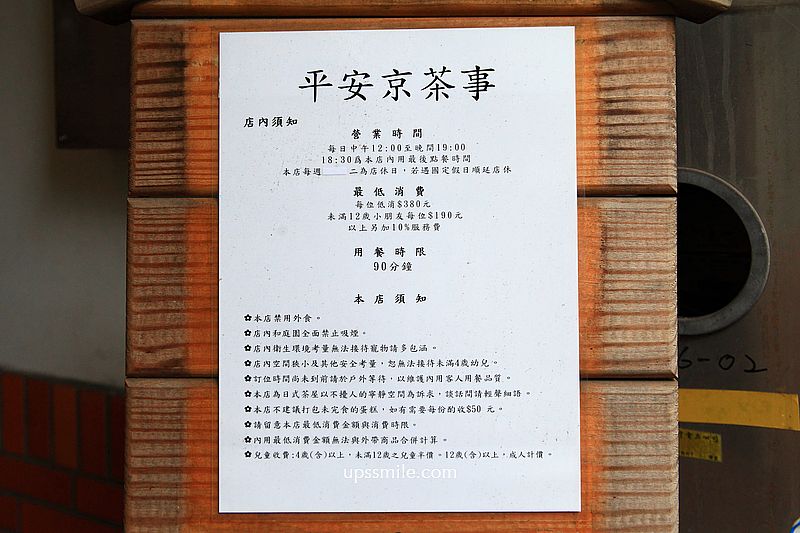 平安京茶事
店內須知
營業時間
每日中午12:00至晚間19:00
18:30為本店內用最後點餐時間
本店每週 二為店休日，若遇國定假日順延店休
最低消費
每位低消$380元
未滿12歲小朋友每位$190元
以上另加10%服務費
用餐時限
90分鐘
本店須知
✿本店禁用外食。
✿店內和庭園全面禁止吸煙。
✿店內衛生環境考量無法接待寵物請多包涵。
✿店內空間狹小及其他安全考量，恕無法接待未滿4歲幼兒。
✿訂位時間尚未到前請於戶外等待，以維護內用客人用餐品質。
✿本店為日式茶屋以不擾人的寧靜空間為訴求，談話間請輕聲細語。
✿本店不建議打包未完食的蛋糕，如有需要每份酌收$50 元。
✿請留意本店最低消費金額與消費時限。
✿內用最低消費金額無法與外帶商品合併計算。
✿兒童收費:4歲(含)以上，未滿12歲之兒童半價。12歲(含)以上，成人計價。
upssmile.com
6-02